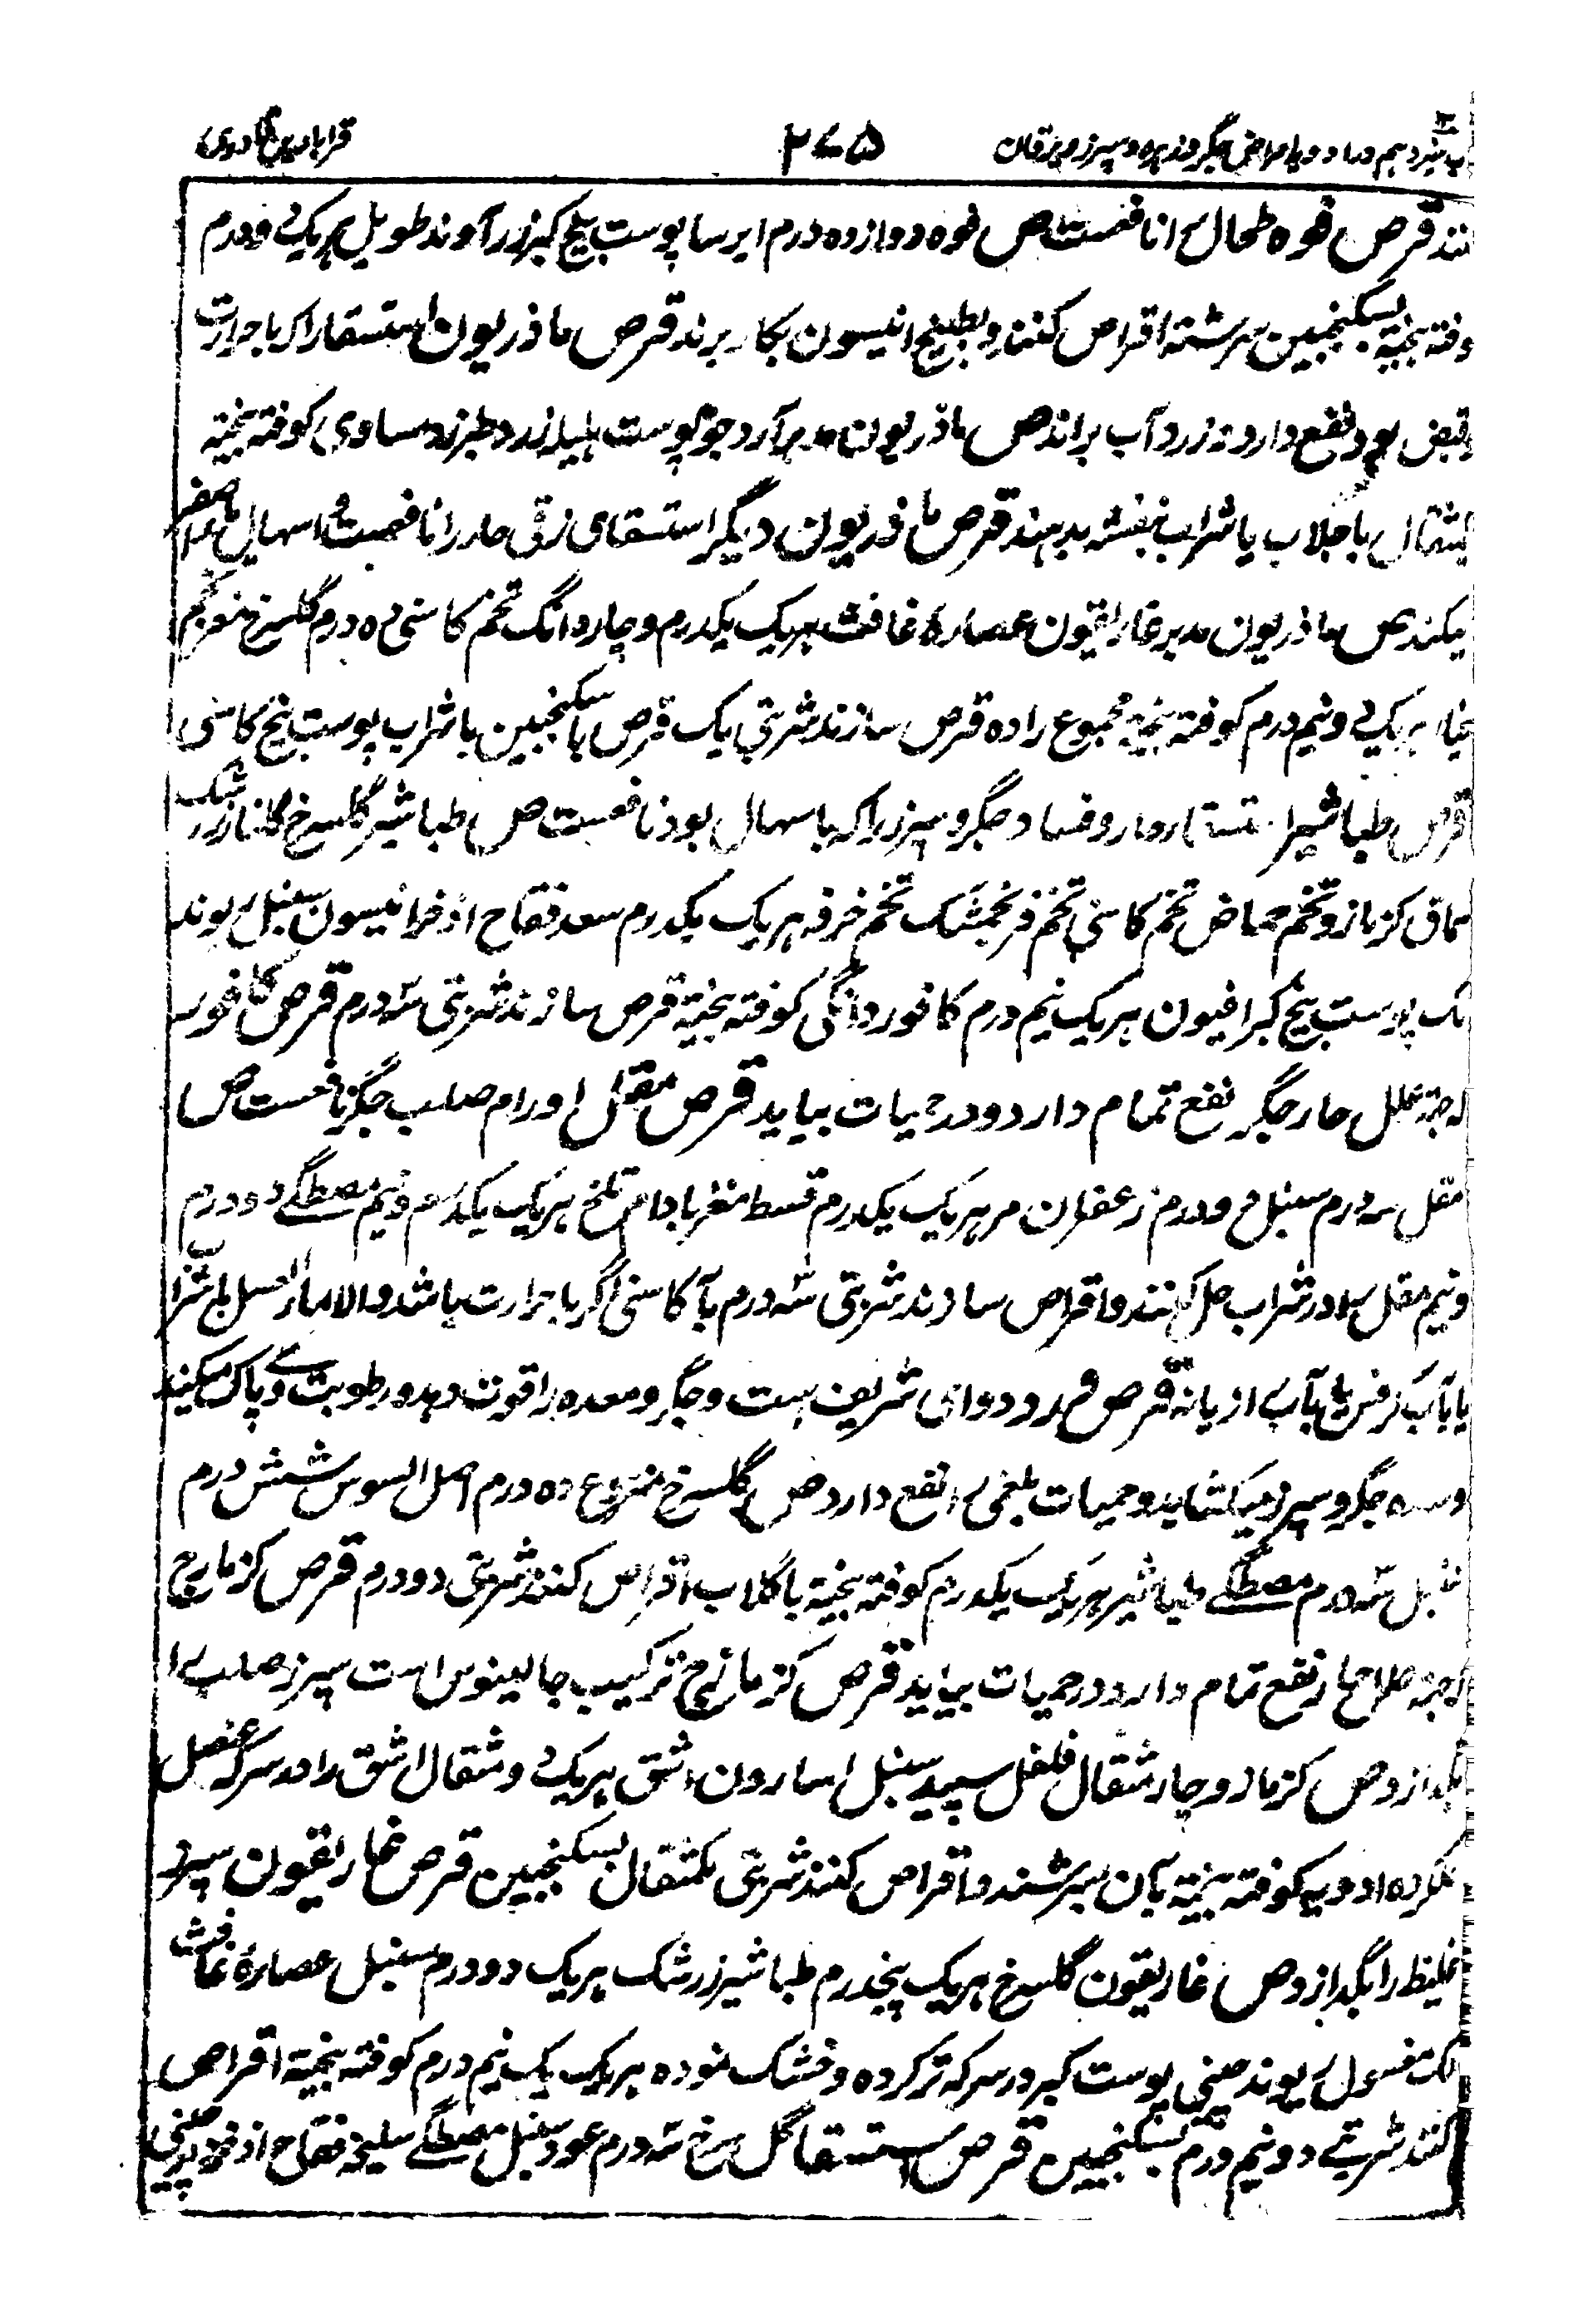 باب سیزدهم در ادویه امراض جگر و زهره و سپرز و یرقان
۲۷۵
قرابادین قادری
کنند قرص فوه طحال را نافعست ص فوه دوازده درم ایرسا پوست بیخ کبر زرآوند طویل هر یک دو درم
کوفته بیخته بسکنجبین سرشته اقراص کنند و بطبیخ انیسون بکار برند قرص ماذریون استسقا را که با حرارت
و قبض بود نفع دارد و زرد آب براند ص ماذریون مدبر آرد جو پوست هلیله زرد طبرزد مساوی کوفته بیخته
یکمثقال با جلاب یا شراب بنفشه بدهند قرص ماذریون دیگر استسقای زقی حار را نافعست و اسهال ماء اصفر
میکند ص ماذریون مدبر غاریقون عصاره غافث هر یک یکدرم و چار دانگ تخم کاسنی ده درم گلسرخ مغز تخم
خیار هر یک دو نیم درم کوفته بیخته مجموع را ده قرص سازند شربتی یک قرص با سکنجبین یا شراب پوست بیخ کاسنی
قرص طباشیر استسقاء حار و فساد جگر و سپرز را که با اسهال بود نافعست ص طباشیر گلسرخ گلنار زرشک
سماق کزمازو تخم حماض تخم کاسنی تخم فرنجمشک تخم خرفه هر یک یکدرم سعد فقاح اذخر انیسون سنبل ریوند
لک پوست بیخ کبر افیون هر یک نیم درم کافور دانگی کوفته بیخته قرص سازند شربتی سه درم قرص کافور
که جهة علل حار جگر نفع تمام دارد و در حمیات بیاید قرص مقل اورام صلب جگر را نافعست ص
مقل سه درم سنبل دو درم زعفران مر هر یک یکدرم قسط مغز بادام تلخ هر یک یکدرم و نیم مصطگی دو درم
و نیم مقل را در شراب حل کنند و اقراص سازند شربتی سه درم بآب کاسنی اگر با حرارت باشد و الا ماء العسل یا شراب
یا بآب کرفس یا بآب رازیانه قرص ورد دوای شریف ست و جگر و معده را قوت دهد و رطوبت وی پاک میکند
و سده جگر و سپرز میکشاید و حمیات بلغمی را نفع دارد ص گلسرخ منزوع ده درم اصل السوس شش درم
سنبل سه درم مصطگی طباشیر هر یک یکدرم کوفته بیخته با گلاب اقراص کنند شربتی دو درم قرص کزمازج
که جهة صلابة طحال نفع تمام دارد و در حمیات بیاید قرص کزمازج ترکیب جالینوس است سپرز صلب را
بگدازد ص کزمازو چار مثقال فلفل سپید سنبل اسارون اشق هر یک دو مثقال اشق را در سرکه عنصل
حل کرده ادویه کوفته بیخته بآن بسرشند و اقراص کنند شربتی یکمثقال بسکنجبین قرص غاریقون سپرز
غلیظ را بگدازد ص غاریقون گلسرخ هر یک پنجدرم طباشیر زرشک هر یک دو درم سنبل عصاره غافث
لک مغسول ریوند چینی پوست کبر در سرکه تر کرده و خشک نموده هر یک یک نیم درم کوفته بیخته اقراص
کنند شربتی دو نیم درم بسکنجبین قرص استسقا گل سرخ سه درم عود سنبل مصطگی سلیخه فقاح اذخر ریوند چینی